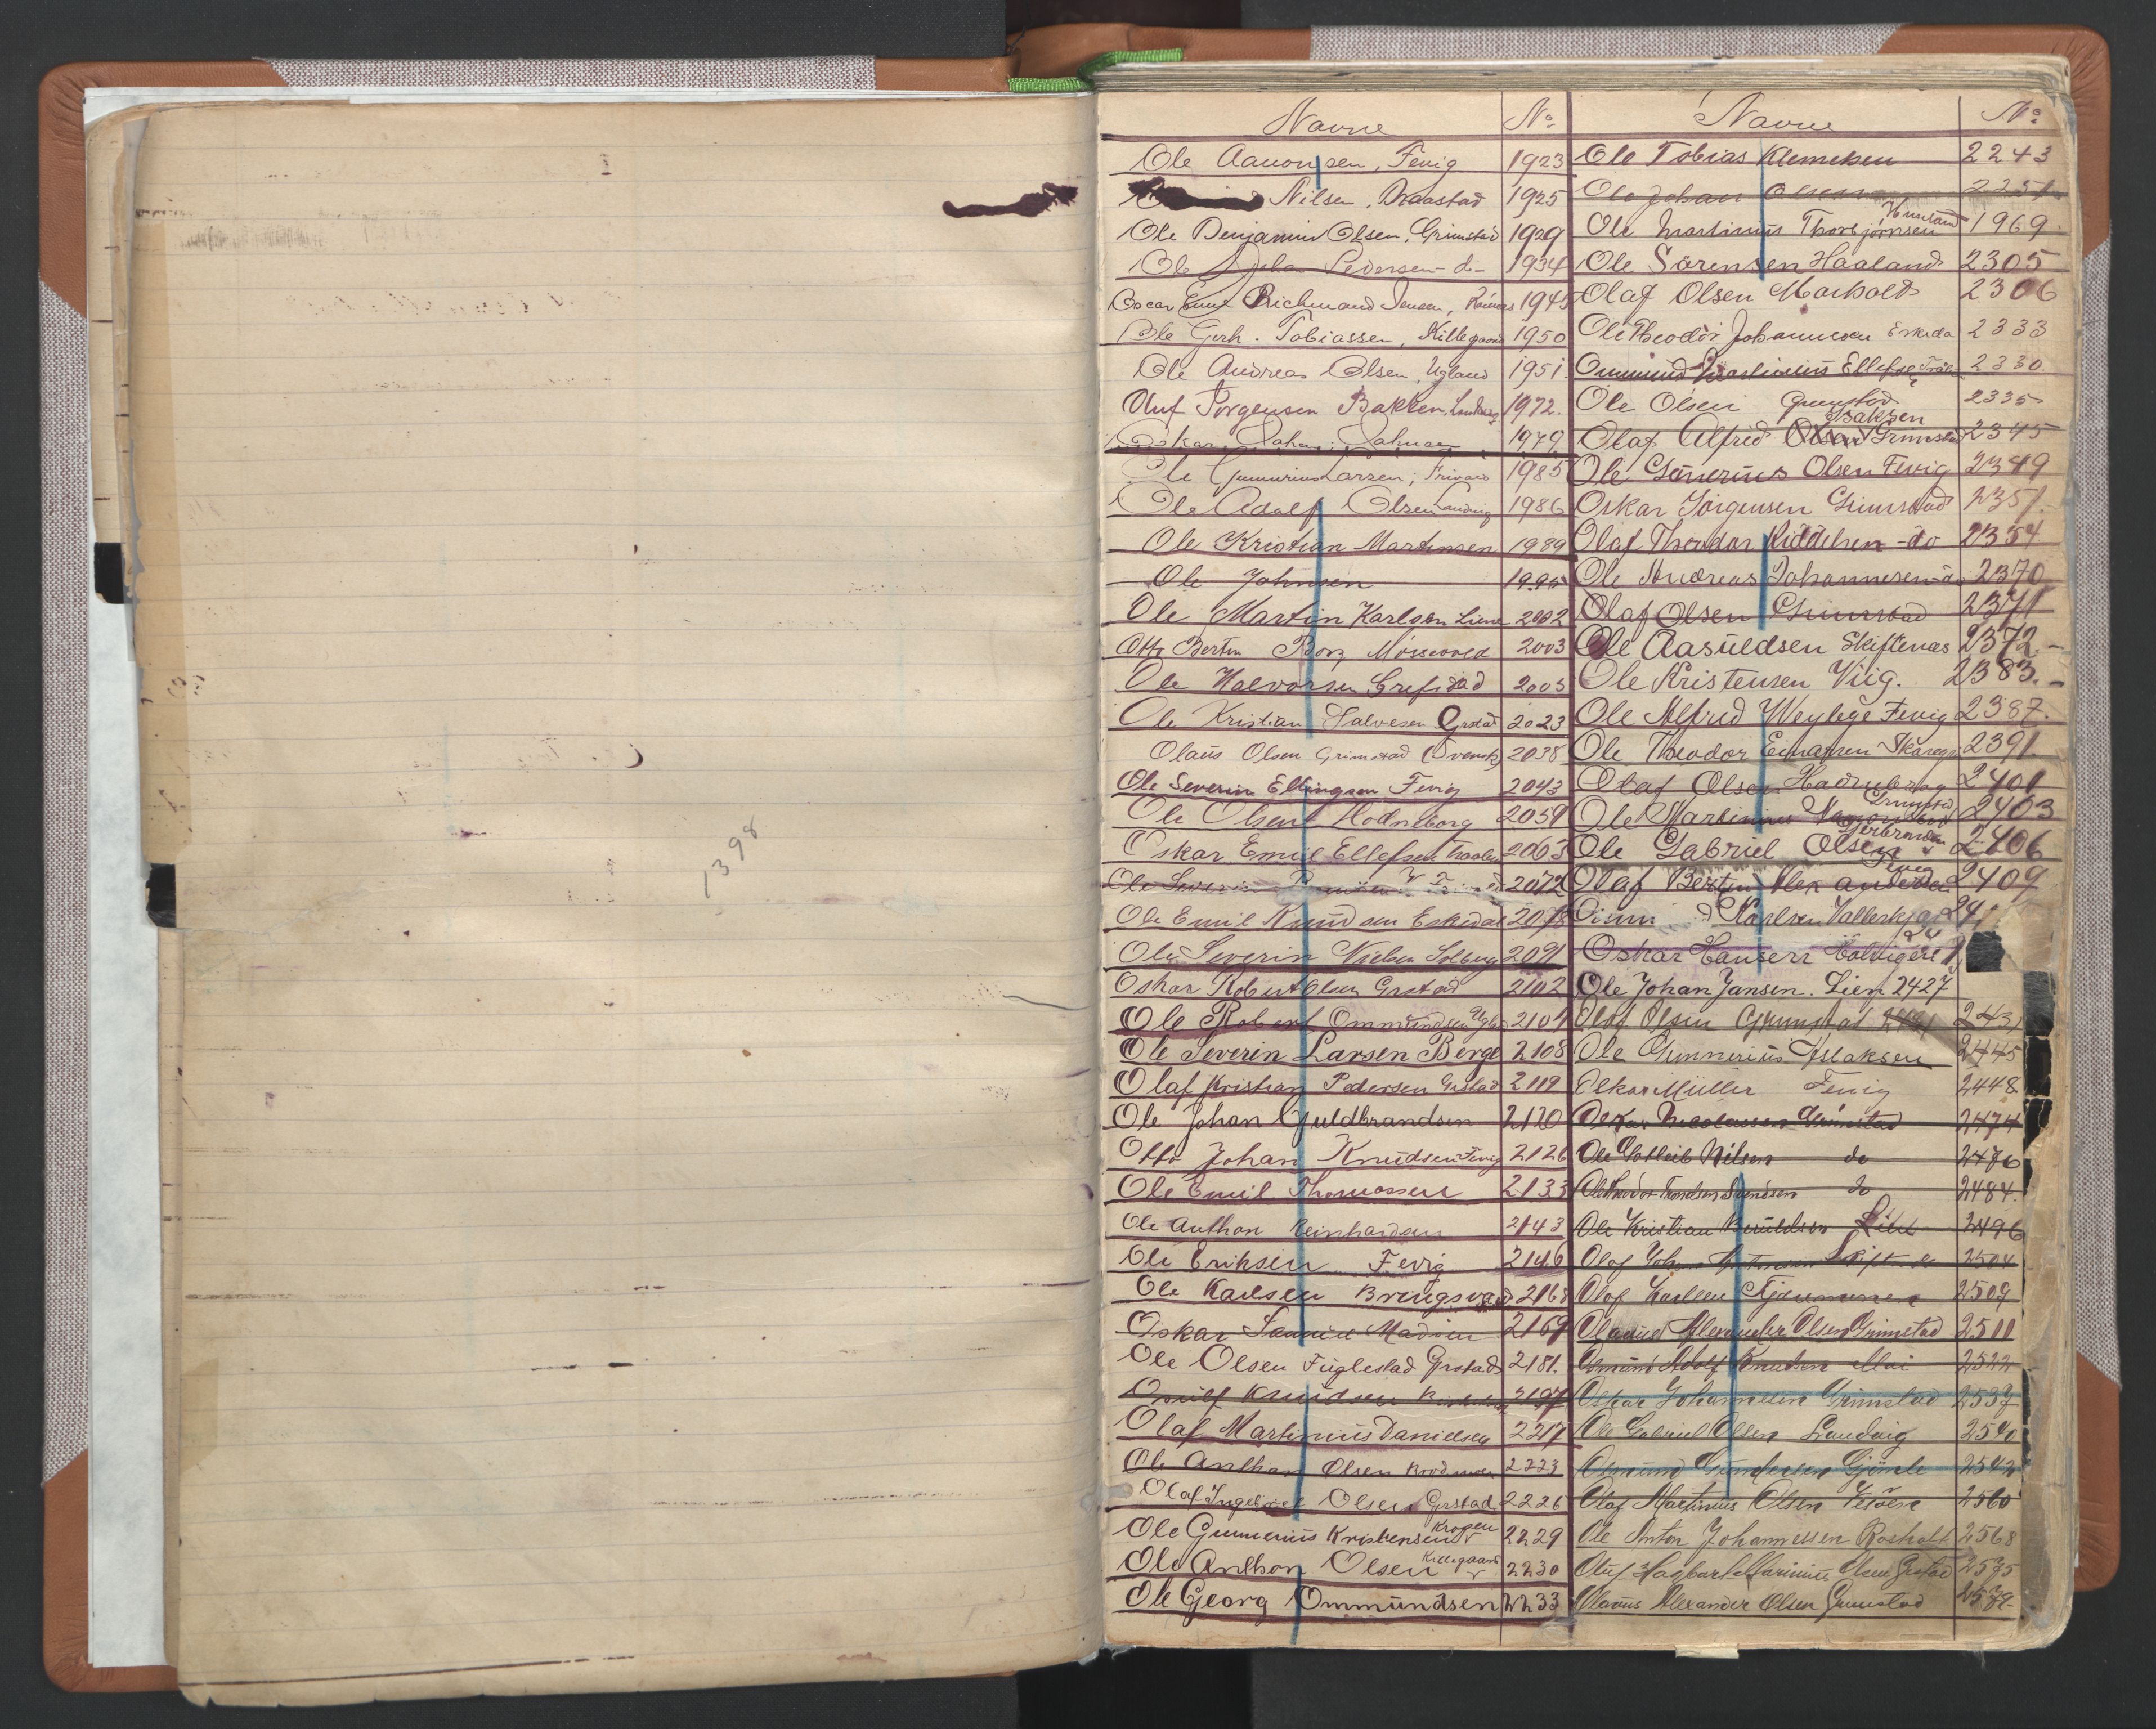 1398
Navne No
Ole Aanonsen, Fevig 1923
Nilsen, Draastad 1925
Ole Benjamin Olsen, Grimstad 1929
Ole Johan Pedersen - do - 1934
Oscar Emil Richmand Jensen, 1945
Ole Gerh. Tobiassen, Killegaard 1950
Ole Andreas Olsen, Ugland 1951.
Oluf Jørgensen Bakken, 1972.
Oskar Johan 1979
Ole Gunnerius Larsen, 1985
Ole Adolf Olsen Landvig 1986
Ole Kristian Martinsen 1989
Ole Johnsen 1995
Ole Martin Karlsen Liene 2002
Otto Bertin Borg 2003
Ole Halvorsen Grefstad 2005
Ole Kristian Salvesen Grstad 2023
Olaus Olsen Grimstad (Svensk) 2038
Ole Severin Ellingsen Fevig 2043
Ole Olsen Hodneborg 2059
Oskar Emil Ellefsen 2063
Ole Severin 2072
Ole Emil Knudsen Eskedal 2078
Ole Severin Nielsen Solberg 2091
Oskar Robert Olsen Grstad 2102
Ole Robert Ommundsen 2104
Ole Severin Larsen Berge 2108
Olaf Kristian Pedersen Grstad 2119
Ole Johan Guldbrandsen 2120
Otto Johan Knudsen Fevig 2126
Ole Emil Thomassen 2133
Ole Anthon Reinhardsen 2143
Ole Eriksen Fevig 2146
Ole Karlsen Bringsværd 2168
Oskar Madsen 2169
Ole Olsen Fuglestad Grstad 2181.
Knudsen 2197
Olaf Martinius Danielsen 2217
Ole Anthon Olsen 2223
Olaf Ingebret Olsen Grstad. 2226
Ole Gunnerius Kristensen Kragen 2229
Ole Anthon Olsen Killegaard 2230
Ole Georg Ommundsen 2233
Navne No
Ole Tobias Klemetsen 2243
Ole Johan Olsen 2251
Ole Martinus Thorbjørnsen 1969.
Ole Sörensen Haaland 2305
Olaf Olsen Marholt 2306
Ole Theodor Johannesen Eskeda 2333
Ommund Martinius Ellefsen 2330.
Ole Olsen Grimstad 2335
Olaf Alfred Isaksen Grimstad 2345
Ole Gunerius Olsen Fevig 2349
Oskar Jörgensen Grimstad 2351.
Olaf Theodor Kiddelsen - do 2354
Ole Andreas Johannesen - do 2370
Olaf Olsen Grimstad 2371
Ole Aasuldsen Skiftenæs 2372.-
Ole Kristensen Viig. 2383.-
Ole Alfred Weylege Fevig 2387.
Ole Theodor Einarsen 2391
Olaf Olsen 2401
Ole Martinius Grimstad 2403
Ole Gabriel Olsen 2406
Olaf Bertin Alexandersen 2409
Karlsen 24
Oskar Hansen
Ole Johan Jansen. Lien 2427
Olaf Olsen Grimstad 2431
Ole Gunnerius Aslaksen 2445
Oskar Müller Fevig 2448
Oskar Nicolaisen Grimstad 2474
Ole Gotleib Nilsen do 2476
Ole Theodor Svendsen do 2484.
Ole Kristian 2496
Olaf Johan 2504
Olaf Karlsen 2509
Olaus Alexander Olsen Grimstad 2511
Osmund Adolf Knudsen 2522
Oskar Johannesen Grimstad 2537
Ole Gabriel Olsen Landvig 2540
Osmund Gundersen 2542
Olaf Martinius Olsen 2560
Ole Anton Johannessen Rosholt 2568
Oluf Hagbart Marinius Olsen Grstad 2575
Olaus Alexander Olsen Grimstad 2579.